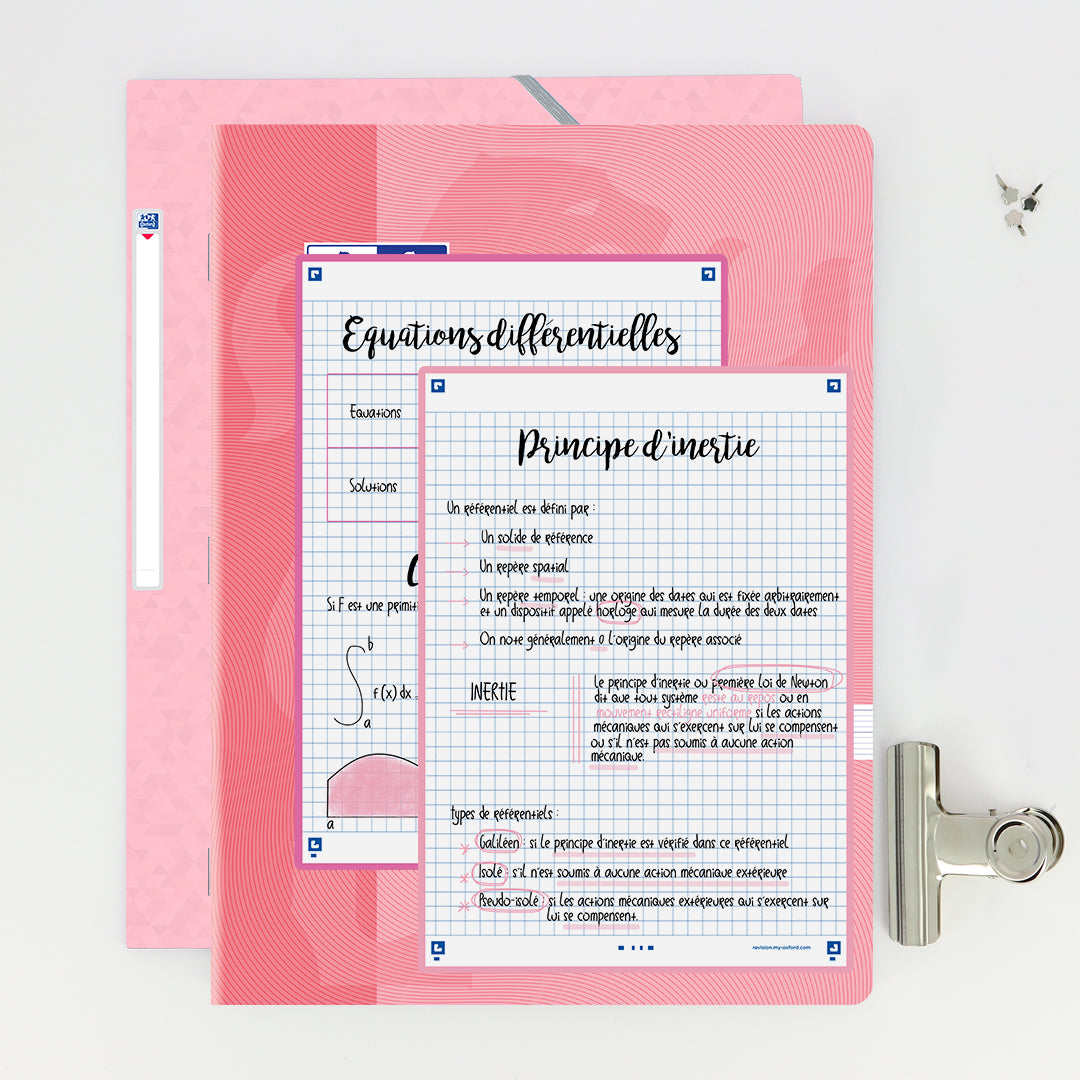 Equations différentielles
Equations
Solutions
Si F est une
b
f(x) dx
a
a
Principe d'inertie
Un référentiel est défini par :
Un solide de référence
Un repère spatial
Un repère temporel : une origine des dates qui est fixée arbitrairement
et un dispositif appelé horloge qui mesure la durée des deux dates
On note généralement O l'origine du repère associé
INERTIE
Le principe d'inertie ou première loi de Newton
dit que tout système reste au repos ou en
mouvement rectiligne uniforme si les actions
mécaniques qui s'exercent sur lui se compensent
ou s'il n'est pas soumis à aucune action
mécanique.
types de référentiels :
Galiléen : si le principe d'inertie est vérifié dans ce référentiel
Isolé : s'il n'est soumis à aucune action mécanique extérieure
Pseudo-isolé : si les actions mécaniques extérieures qui s'exercent sur
lui se compensent.
revision.my-oxford.com